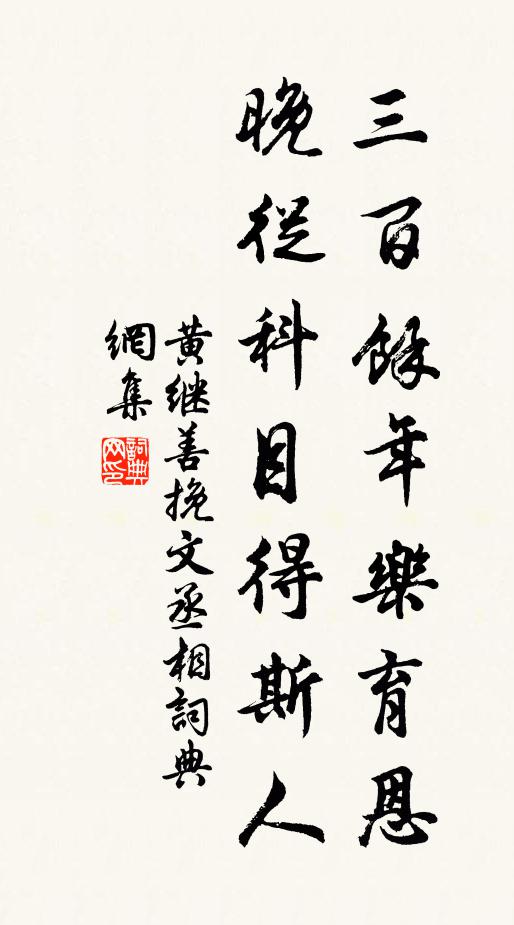 三百餘年樂育恩
晚從科目得斯人
黄继善挽文丞相詞典
網集
詞典
网印